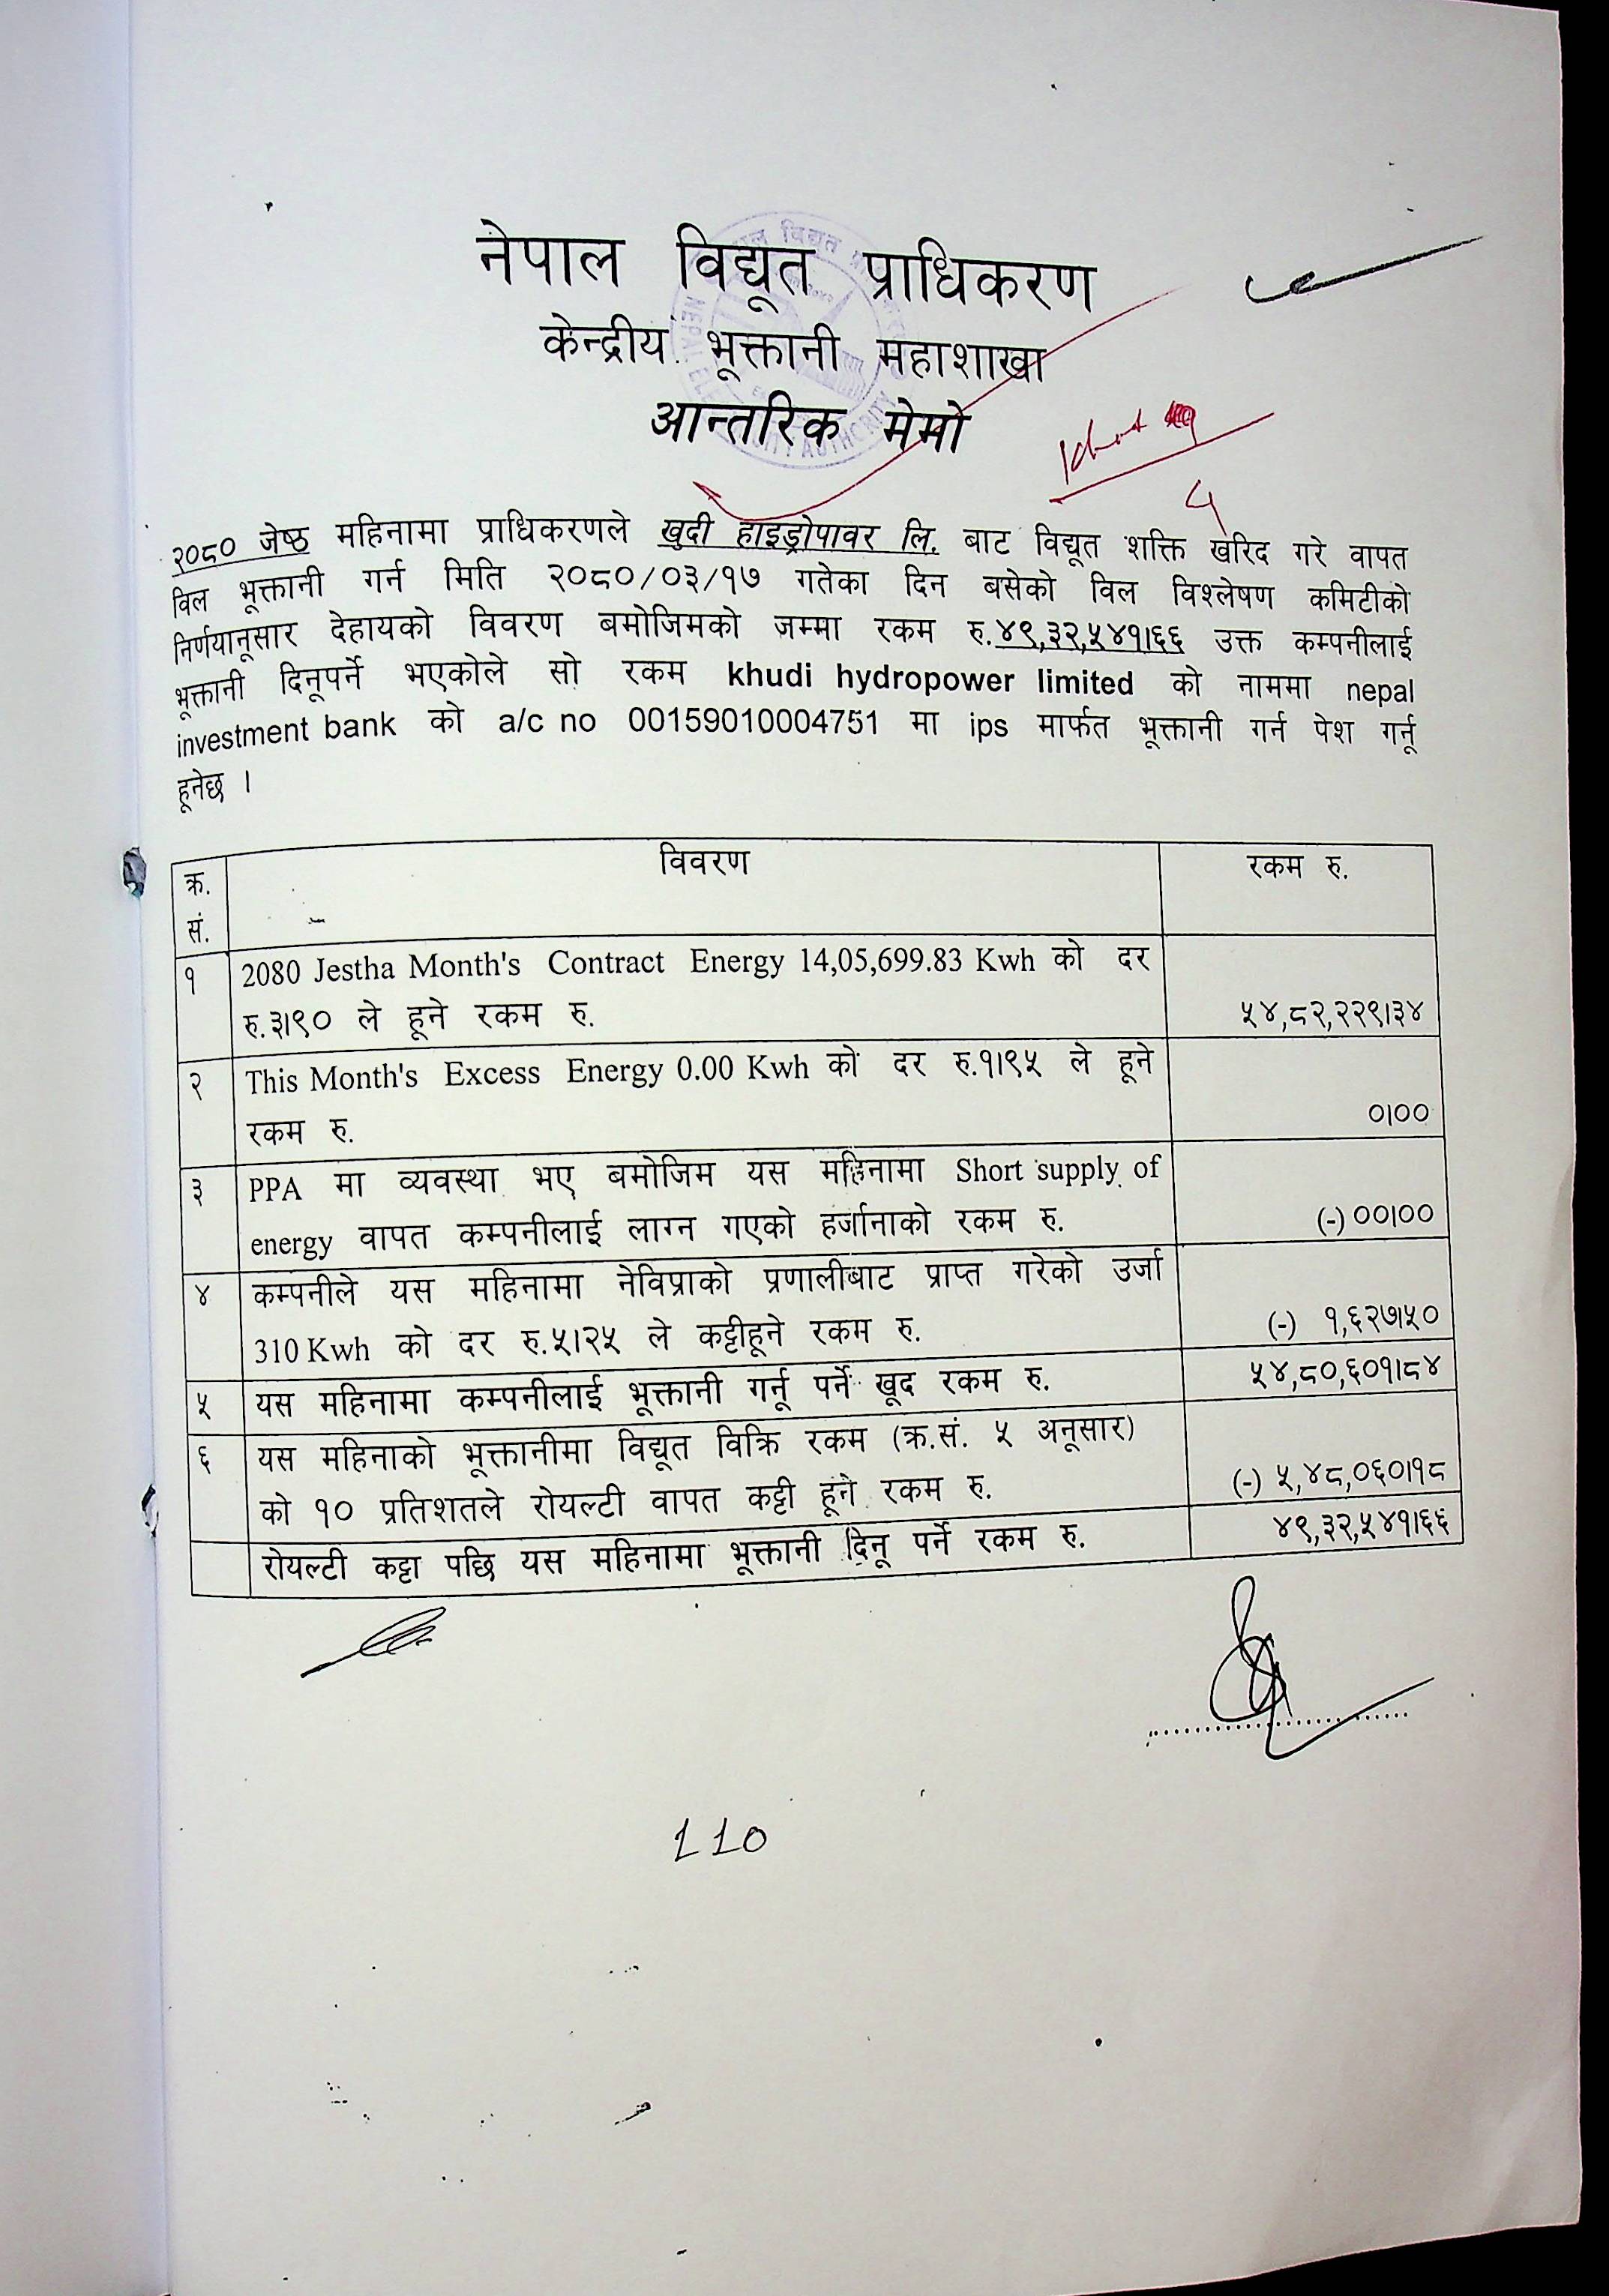 नेपाल विद्यूत प्राधिकरण
केन्द्रीय भूक्तानी महाशाखा
आन्तरिक मेमो
२०८० जेष्ठ महिनामा प्राधिकरणले खुदी हाइड्रोपावर लि. बाट विद्यूत शक्ति खरिद गरे वापत
विल भूक्तानी गर्न मिति २०८०/०३/१७ गतेका दिन बसेको विल विश्लेषण कमिटीको
निर्णयानूसार देहायको विवरण बमोजिमको जम्मा रकम रु.४९,३२,५४१।६६ उक्त कम्पनीलाई
भूक्तानी दिनूपर्ने भएकोले सो रकम khudi hydropower limited को नाममा nepal
investment bank को a/c no 00159010004751 मा ips मार्फत भूक्तानी गर्न पेश गर्नू
हूनेछ ।
क्र. विवरण रकम रु.
सं.
१ 2080 Jestha Month's Contract Energy 14,05,699.83 Kwh को दर
रु.३।९० ले हूने रकम रु. ५४,८२,२२९।३४
२ This Month's Excess Energy 0.00 Kwh को दर रु.१।९५ ले हूने
रकम रु. ०।००
३ PPA मा व्यवस्था भए बमोजिम यस महिनामा Short supply of
energy वापत कम्पनीलाई लाग्न गएको हर्जानाको रकम रु. (-) ००।००
४ कम्पनीले यस महिनामा नेविप्राको प्रणालीबाट प्राप्त गरेको उर्जा
310 Kwh को दर रु.५।२५ ले कट्टीहूने रकम रु. (-) १,६२७।५०
५ यस महिनामा कम्पनीलाई भूक्तानी गर्नू पर्ने खूद रकम रु. ५४,८०,६०१।८४
६ यस महिनाको भूक्तानीमा विद्यूत विक्रि रकम (क्र.सं. ५ अनूसार)
को १० प्रतिशतले रोयल्टी वापत कट्टी हूने रकम रु. (-) ५,४८,०६०।१८
रोयल्टी कट्टा पछि यस महिनामा भूक्तानी दिनू पर्ने रकम रु. ४९,३२,५४१।६६
110